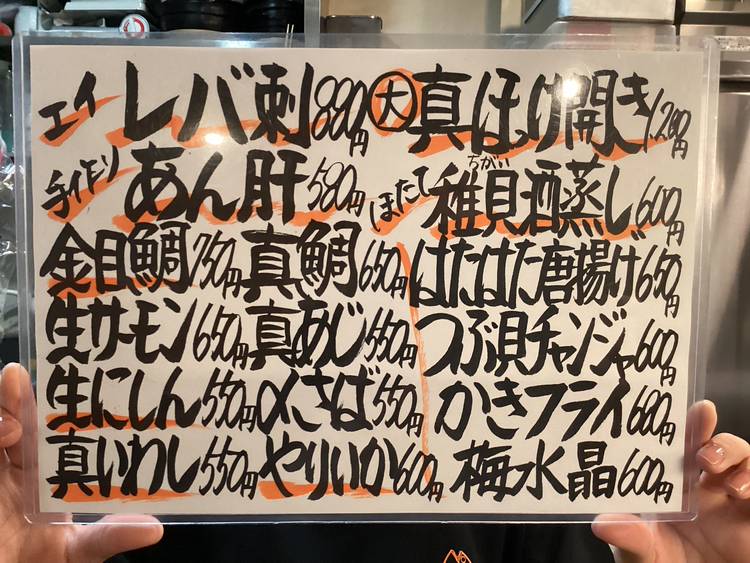 エイ レバ刺 880円
手作り あん肝 580円
金目鯛 750円 真鯛 650円
生サーモン 650円 真あじ 550円
生にしん 550円 〆さば 550円
真いわし 550円 やりいか 600円
大 真ほっけ開き 1,200円
ちがい
ほたて 稚貝酒蒸し 600円
はたはた唐揚げ 650円
つぶ貝チャンジャ 600円
かきフライ 680円
梅水晶 600円